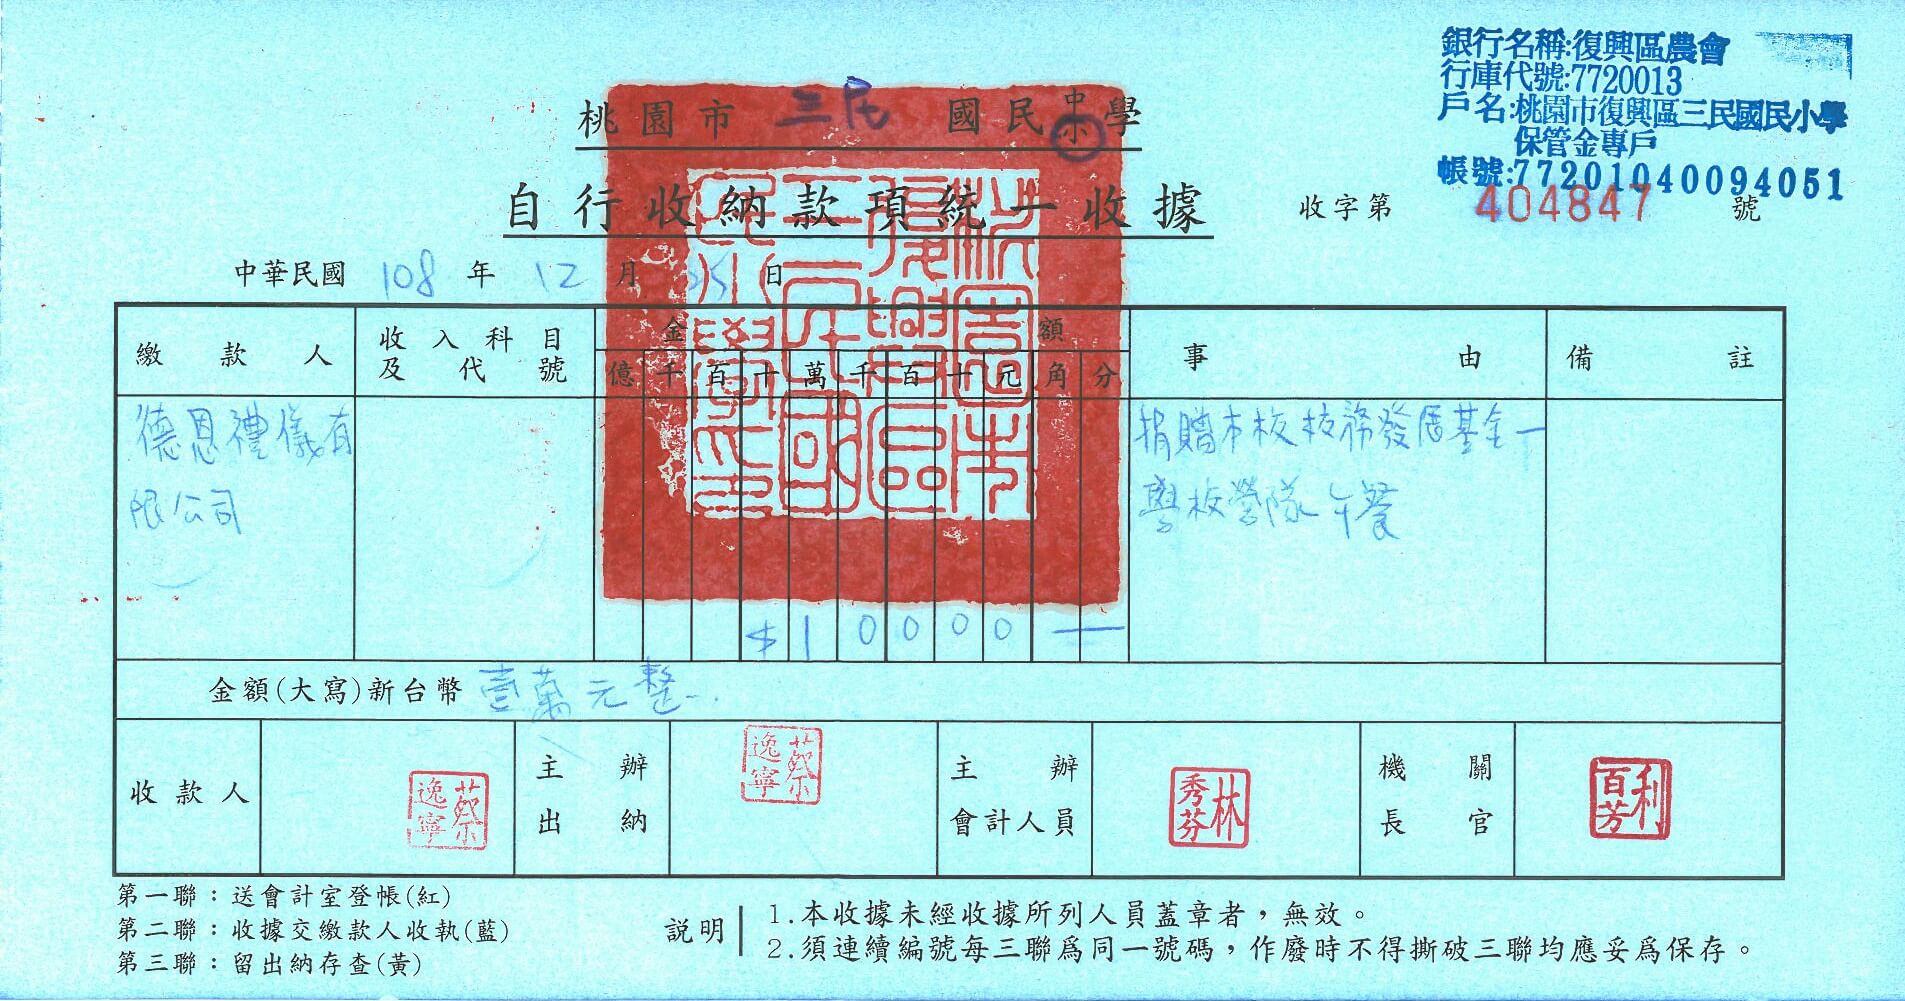 銀行名稱:復興區農會
行庫代號:7720013
戶名:桃園市復興區三民國民小學
保管金專戶
帳號:77201040094051
桃園市 三民 國民中小學
自行收納款項統一收據
收字第 404847 號
中華民國 108 年 12 月 25 日
繳款人 收入科目及代號 金額 事由 備註
億 千 百 十 萬 千 百 十 元 角 分
德恩禮儀有
限公司
捐贈本校校務發展基金—
學校營隊午餐
$10000—
金額(大寫)新台幣 壹萬元整
收款人 蔡逸寧 主辦出納 蔡逸寧 主辦會計人員 林秀芬 機關長官 利百芳
桃園市
復興區
三民國
民小學印
第一聯：送會計室登帳(紅)
第二聯：收據交繳款人收執(藍)
第三聯：留出納存查(黃)
說明
1.本收據未經收據所列人員蓋章者，無效。
2.須連續編號每三聯為同一號碼，作廢時不得撕破三聯均應妥為保存。